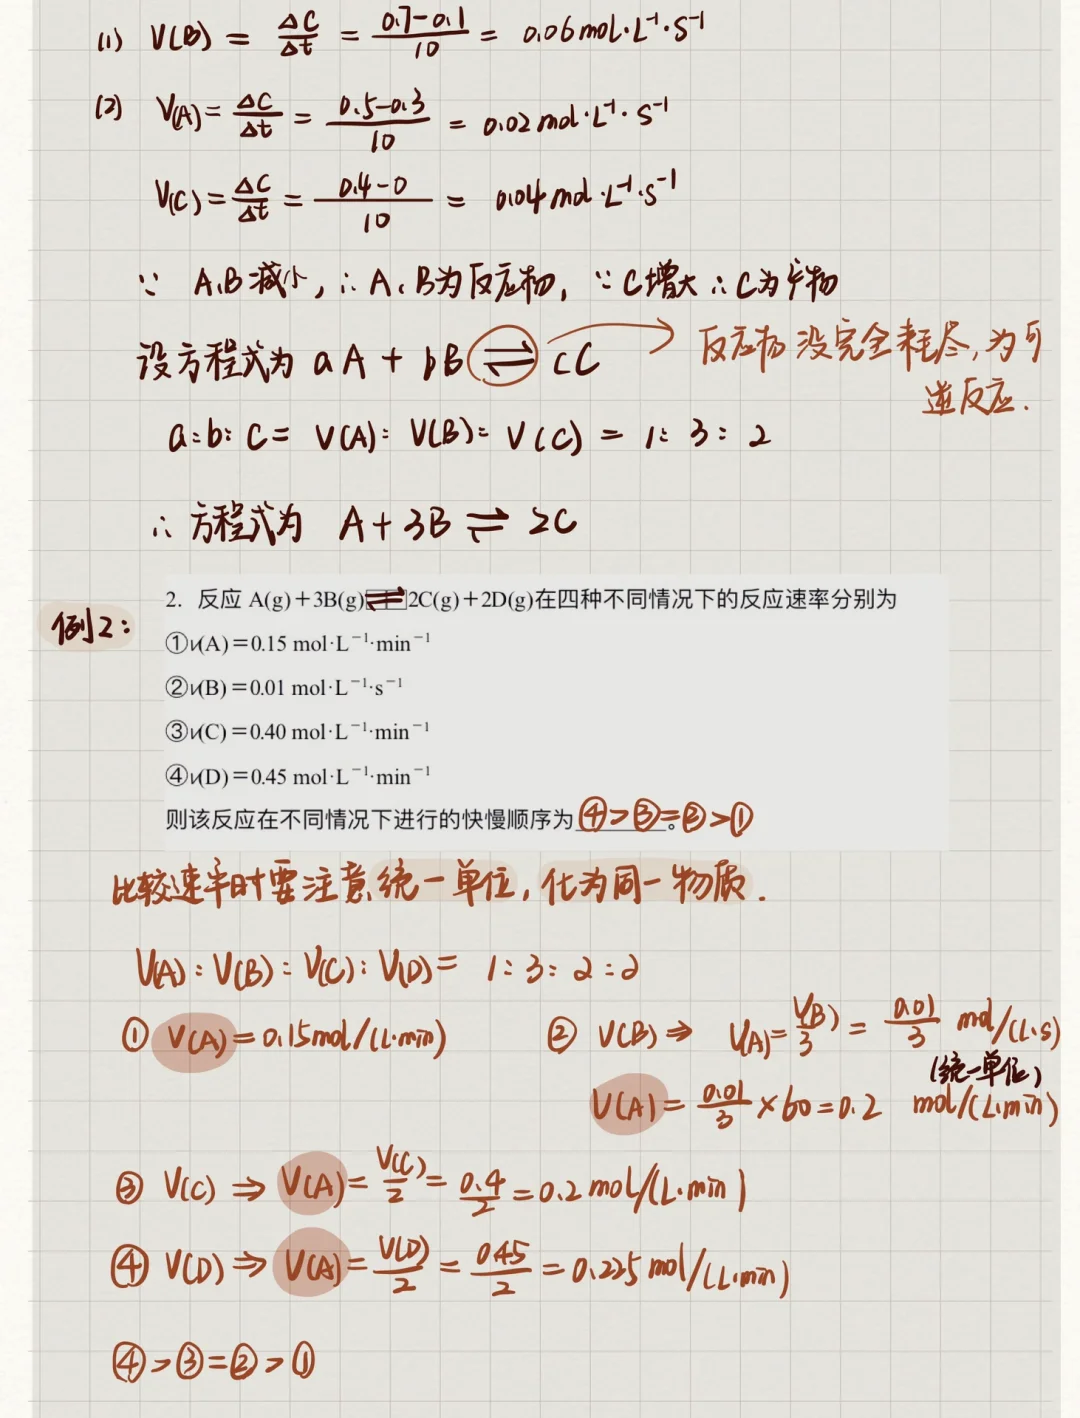 (1) V(B) = ΔC/Δt = (0.7-0.1)/10 = 0.06 mol·L⁻¹·S⁻¹
(2) V(A) = ΔC/Δt = (0.5-0.3)/10 = 0.02 mol·L⁻¹·S⁻¹
V(C) = ΔC/Δt = (0.4-0)/10 = 0.04 mol·L⁻¹·s⁻¹
∵ A、B减小, ∴ A、B为反应物, ∵ C增大 ∴ C为产物
设方程式为 aA + bB ⇌ cC → 反应物没完全耗尽,为可
逆反应.
a:b:c = V(A):V(B):V(C) = 1:3:2
∴ 方程式为 A+3B ⇌ 2C
例2:
2. 反应 A(g)+3B(g)⇌2C(g)+2D(g)在四种不同情况下的反应速率分别为
①v(A)=0.15 mol·L⁻¹·min⁻¹
②v(B)=0.01 mol·L⁻¹·s⁻¹
③v(C)=0.40 mol·L⁻¹·min⁻¹
④v(D)=0.45 mol·L⁻¹·min⁻¹
则该反应在不同情况下进行的快慢顺序为④>③=②>①。
比较速率时要注意统一单位,化为同一物质.
V(A):V(B):V(C):V(D) = 1:3:2:2
① V(A) = 0.15mol/(L·min) ② V(B) ⇒ V(A) = V(B)/3 = 0.01/3 mol/(L·s)
(统一单位)
V(A) = 0.01/3 ×60 = 0.2 mol/(L·min)
③ V(C) ⇒ V(A) = V(C)/2 = 0.4/2 = 0.2 mol/(L·min)
④ V(D) ⇒ V(A) = V(D)/2 = 0.45/2 = 0.225 mol/(L·min)
④>③=②>①